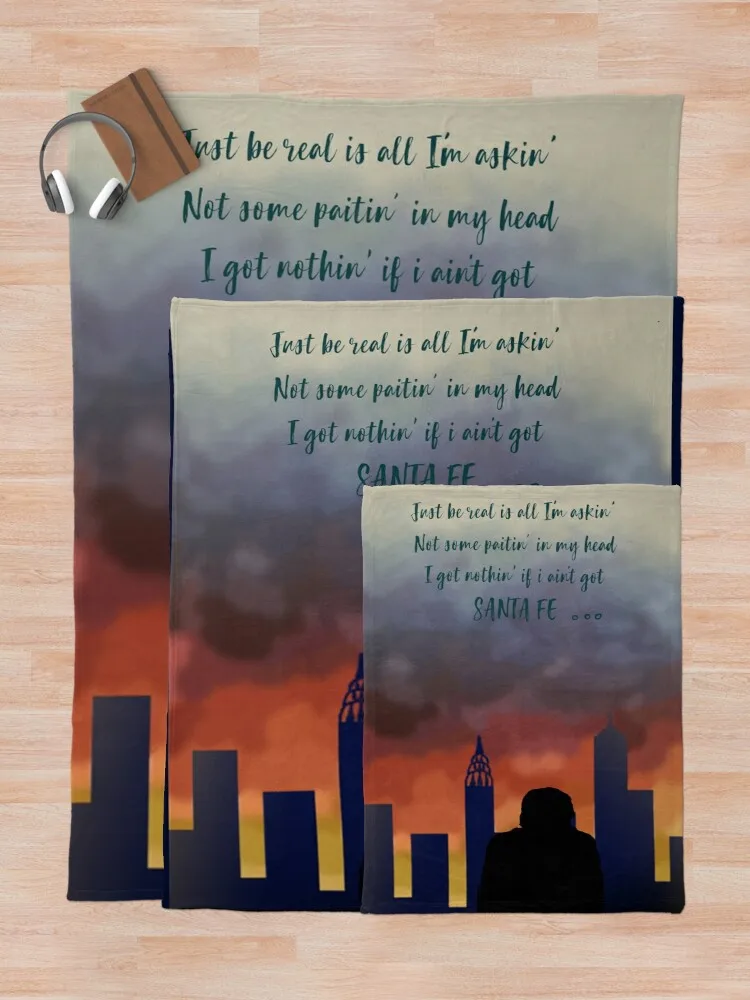 Just be real is all I'm askin'
Not some paitin' in my head
I got nothin' if i ain't got
Just be real is all I'm askin'
Not some paitin' in my head
I got nothin' if i ain't got
SANTA FE
Just be real is all I'm askin'
Not some paitin' in my head
I got nothin' if i ain't got
SANTA FE ...